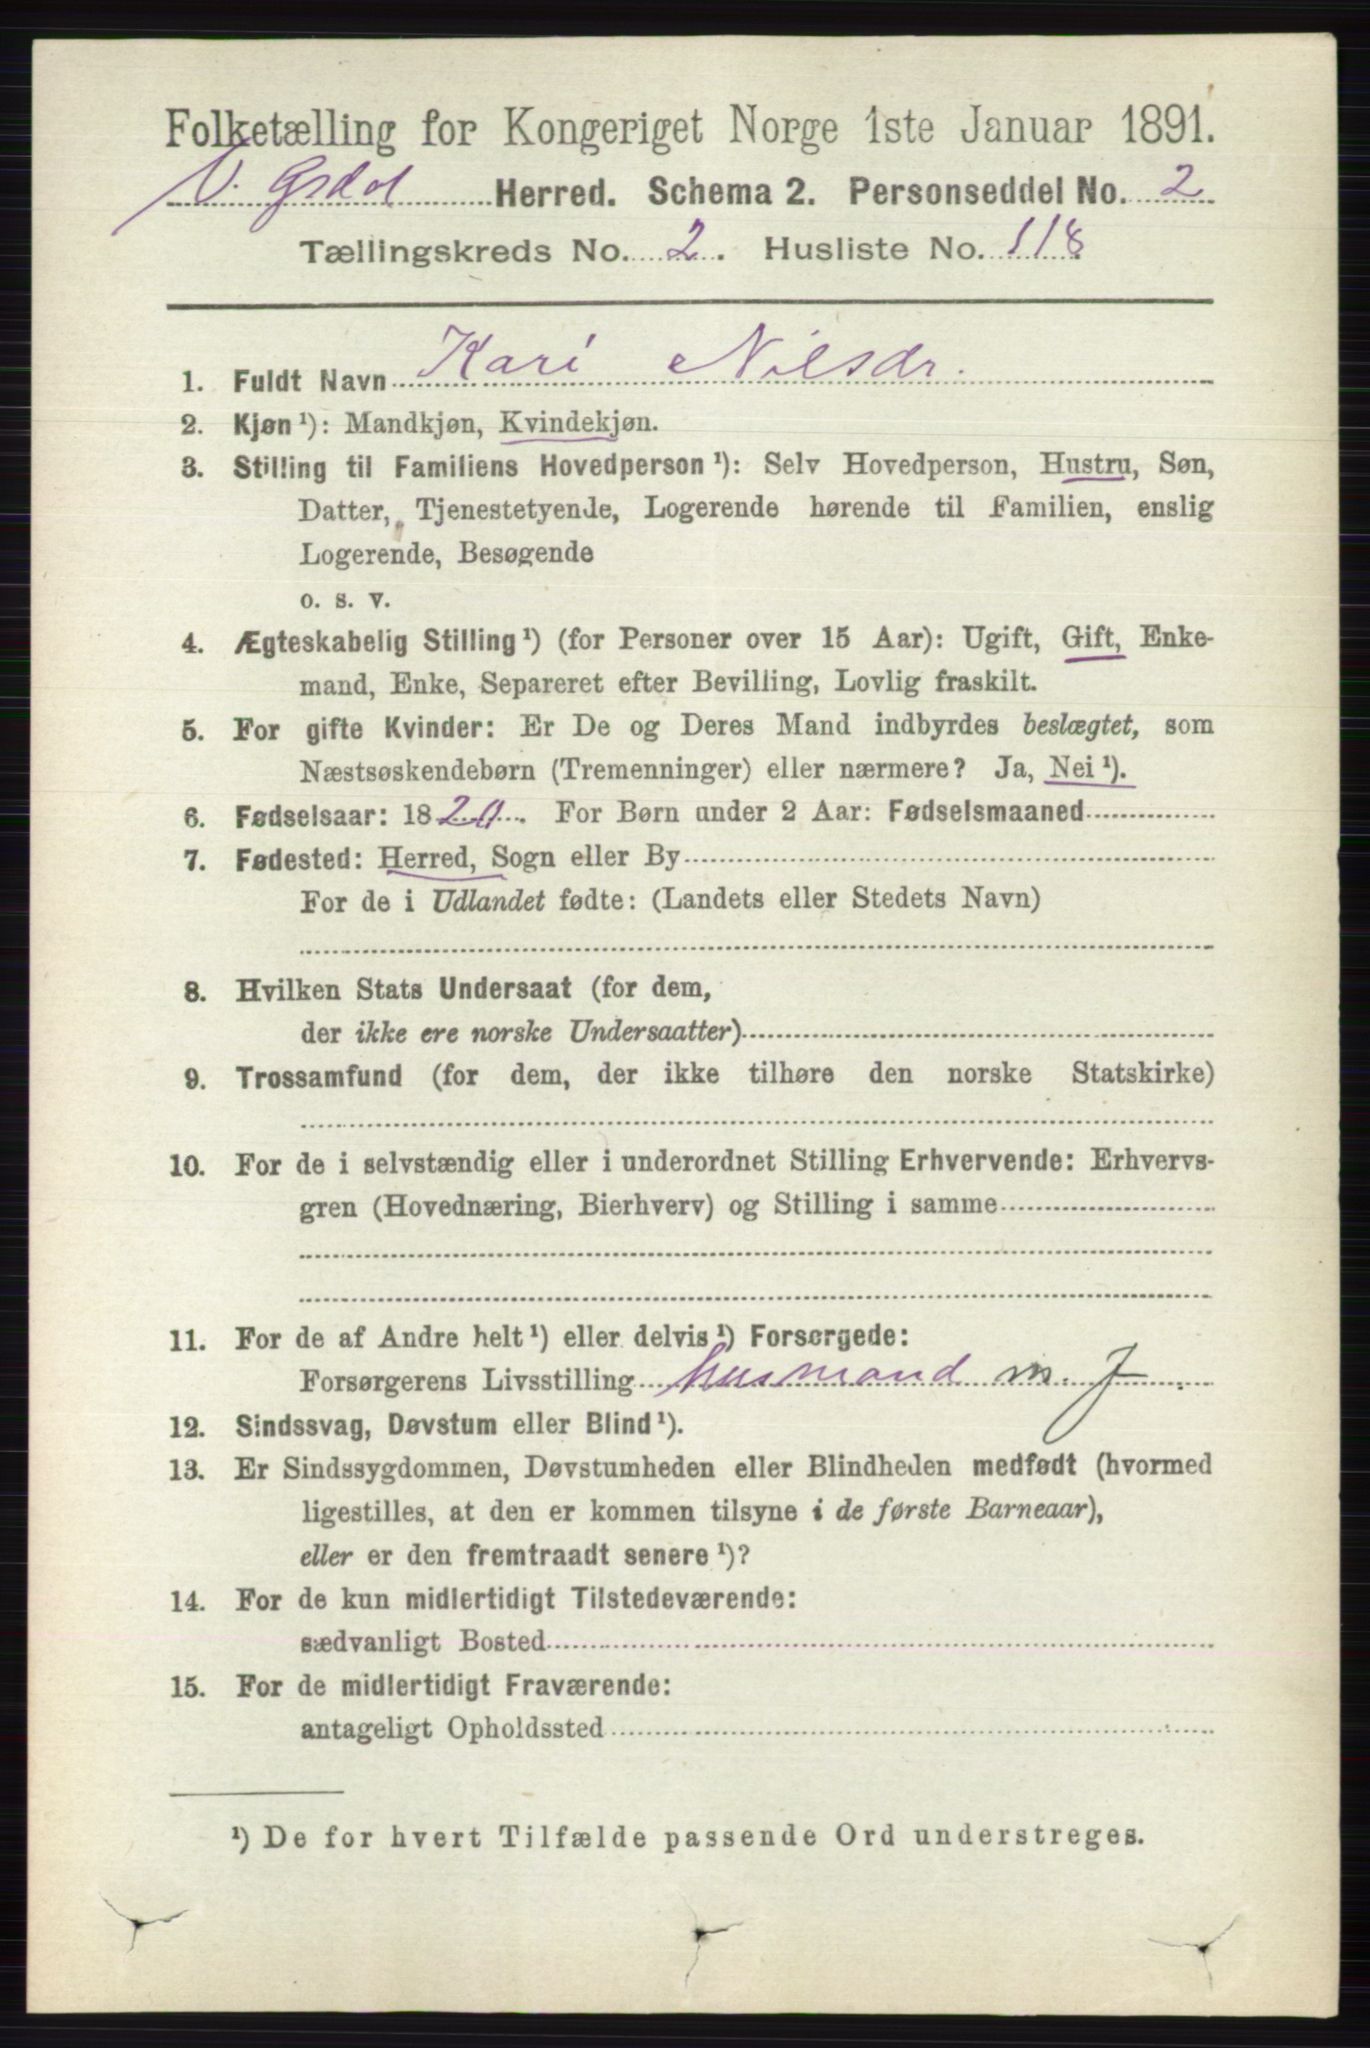 Folketælling for Kongeriget Norge 1ste Januar 1891.
V. Gsdal Herred. Schema 2. Personseddel No. 2
Tællingskreds No. 2. Husliste No. 118
1. Fuldt Navn Kari Nilsdr.
2. Kjøn ¹): Mandkjøn, Kvindekjøn.
3. Stilling til Familiens Hovedperson ¹): Selv Hovedperson, Hustru, Søn,
Datter, Tjenestetyende, Logerende hørende til Familien, enslig
Logerende, Besøgende
o. s. v.
4. Ægteskabelig Stilling ¹) (for Personer over 15 Aar): Ugift, Gift, Enke-
mand, Enke, Separeret efter Bevilling, Lovlig fraskilt.
5. For gifte Kvinder: Er De og Deres Mand indbyrdes beslægtet, som
Næstsøskendebørn (Tremenninger) eller nærmere? Ja, Nei ¹).
6. Fødselsaar: 1820. For Børn under 2 Aar: Fødselsmaaned
7. Fødested: Herred, Sogn eller By
For de i Udlandet fødte: (Landets eller Stedets Navn)
8. Hvilken Stats Undersaat (for dem,
der ikke ere norske Undersaatter)
9. Trossamfund (for dem, der ikke tilhøre den norske Statskirke)
10. For de i selvstændig eller i underordnet Stilling Erhvervende: Erhvervs-
gren (Hovednæring, Bierhverv) og Stilling i samme
11. For de af Andre helt ¹) eller delvis ¹) Forsørgede:
Forsørgerens Livsstilling husmand m. J.
12. Sindssvag, Døvstum eller Blind ¹).
13. Er Sindssygdommen, Døvstumheden eller Blindheden medfødt (hvormed
ligestilles, at den er kommen tilsyne i de første Barneaar),
eller er den fremtraadt senere ¹)?
14. For de kun midlertidigt Tilstedeværende:
sædvanligt Bosted
15. For de midlertidigt Fraværende:
antageligt Opholdssted
¹) De for hvert Tilfælde passende Ord understreges.